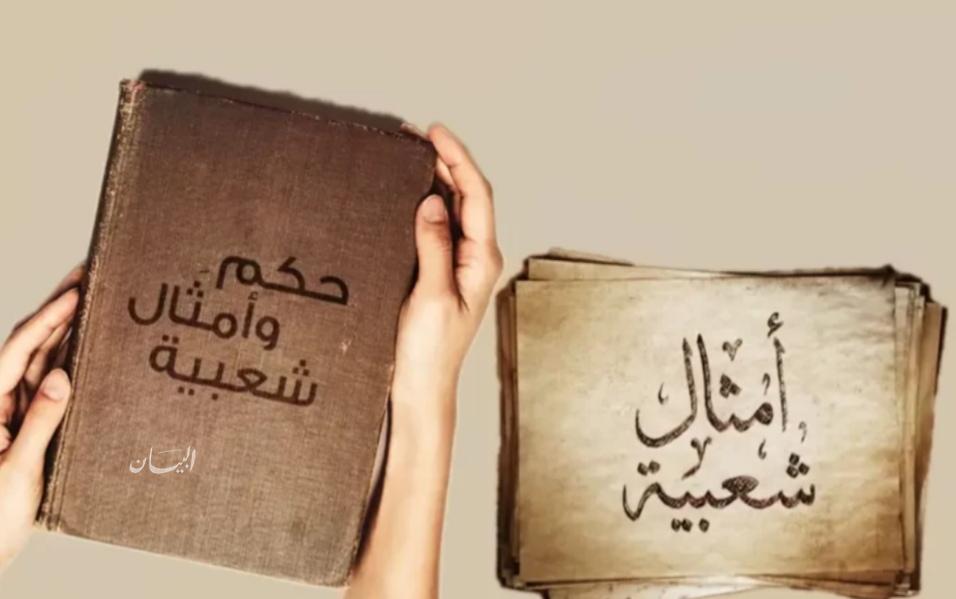 حكم
وأمثال
شعبية
البيان
أمثال
شعبية